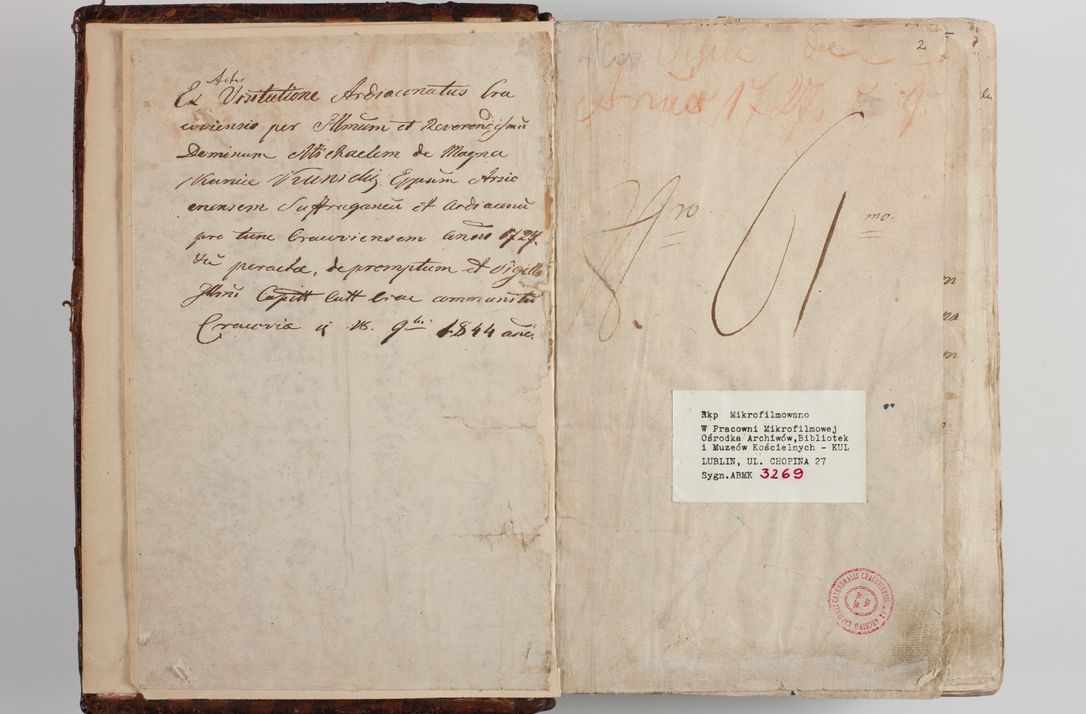 Actis
Ex Visitatione Archidiaconatus Cra
coviensis per Illmum et Reverendissmũ
Dominum Michaelem de Magna
Kunice Kunicki, Eppum Arsic
enensem Suffraganeũ et Archiaconũ
pro tunc Cracoviensem anno 1727.
peractae, depromptum et Sigillo
Illmi Capitt Catt Crac communitũ
Cracoviæ 18. 9bris 1844 anni
2
Visita de
Anno 1727.
Nro 61 mo.
Rkp Mikrofilmowano
W Pracowni Mikrofilmowej
Ośrodka Archiwów,Bibliotek
i Muzeów Kościelnych - KUL
LUBLIN, UL. CHOPINA 27
Sygn.ABMK 3269
CAPITULI CATHEDRALIS CRACOVIENSIS EX ARCHIVO